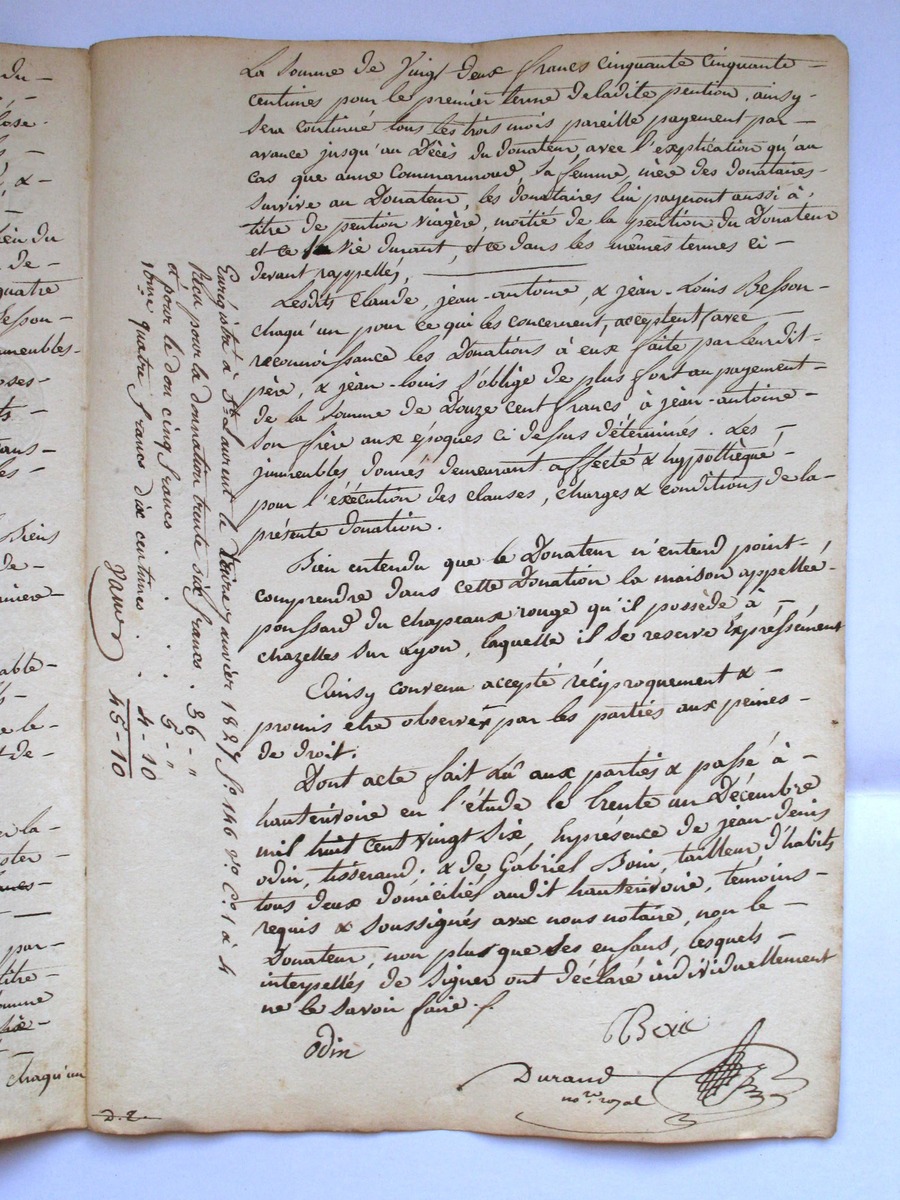 La somme de vingt deux francs cinquante cinquante
centimes pour le premier terme de ladite pention, ainsy
sera continué tous les trois mois pareille payement par
avance jusqu'au Décès du Donateur avec l'explication qu'au
cas que anne Commarmond, sa femme, mère des donataires
survive au Donateur, les donataires lui payeront aussi à
titre de pention viagère, moitié de la pention du Donateur
et ce sa vie durant, et ce dans les mêmes termes ci
devant rappellés,
Lesdits Claude, jean-antoine, & jean-Louis Besson
chaqu'un pour ce qui les concernent, acceptent avec
reconnoissance les Donations à eux faite par leur dit
père, & jean-louis s'oblige de plus fort au payement
de la somme de Douze cent francs, à jean-antoine
son frère aux époques ci dessus détermines. Les
immeubles donnés demeurant affecté & hypothèqué
pour l'éxécution des clauses, charges & conditions de la
présente donation.
Bien entendu que le Donateur n'entend point
comprendre dans cette Donation la maison appellée
poussard du chapeaux rouge qu'il possède à
chazelles sur Lyon, laquelle il se reserve Expressément
Ainsy convenu accepté réciproquement &
promis etre observé par les parties aux peines
de droit;
Dont acte fait Lû aux parties & passé à
hauterivoire en l'étude le trente un Décembre
mil huit cent vingt six En présence de jean-denis
odin, tisserand; & de Gabriel Boin, tailleur d'habits
tous deux domiciliés audit hauterivoire, témoins
requis & soussignés avec nous notaire, non le
Donateur, non plus que ses enfans, lesquels
interpellés de signer ont déclaré individuellement
ne le savoir faire
odin
Durand
no.re royal
Enregistré à St Laurent le janvier 1827 f.o 146 v.o c.e 1 à 4
Reçu pour la donnation trente six francs . 36 - "
et pour le don cinq francs . . . 5 - "
10eme quatre francs dix centimes . . 4 - 10
45-10
du
quatre
Besson
immeubles
Biens
able
par
titre
somme
chaqu'un